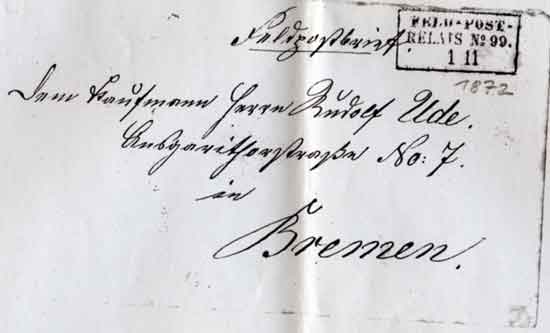 Feldpostbrief.
FELD-POST-
RELAIS No 99.
1 11
1872
Dem Kaufmann Herrn Rudolf Ude.
Ansgarithorstraße No: 7.
in
Bremen.